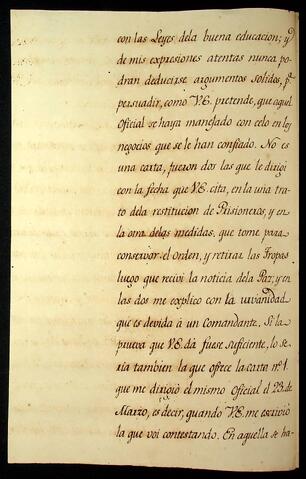 con las Leyes dela buena educacion; y
de mis expresiones atentas nunca po-
dran deducirse argumentos solidos, pa
persuadir, como V.E. pretende, que aquel
Oficial se haya manejado con celo en los
negocios que se le han confiado. No es
una carta, fueron dos las que le dirigi
con la fecha que V.E. cita, en la una tra-
to dela restitucion de Prisioneros, y en
la otra delas medidas, que tome para
conservar el orden, y retirar las Tropas
luego que recivi la noticia dela Paz; y en
las dos me explico con la urvanidad
que es devida à un Comandante. Si la
prueva que V.E. dà fuese suficiente, lo se-
ria tambien la que ofrece la carta nº 1.
que me dirigio el mismo Oficial el 23. de
Marzo, es decir, quando V.E. me escrivio
la que voi contestando. En aquella se ha-